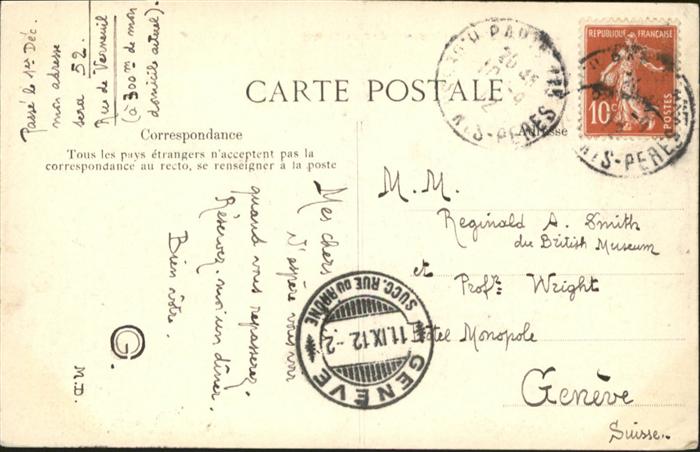 Passé le 1er Déc.
mon adresse
sera 52
Rue de Verneuil
(à 300m de mon
domicile actuel).
CARTE POSTALE
Correspondance
Tous les pays étrangers n'acceptent pas la
correspondance au recto, se renseigner à la poste
Adresse
REPUBLIQUE FRANÇAISE
10c
POSTES
PARIS
STS-PERES
Mes chers
J'espère vous voir
quand vous repasserez.
Réservez-moi un dîner.
Bien vôtre.
G.
M.D.
M.M.
Reginald A. Smith
du British Museum
et Profr. Wright
Hôtel Monopole
Genève
Suisse.
GENÈVE
11.IX.12.-2
SUCC. RUE DU RHÔNE